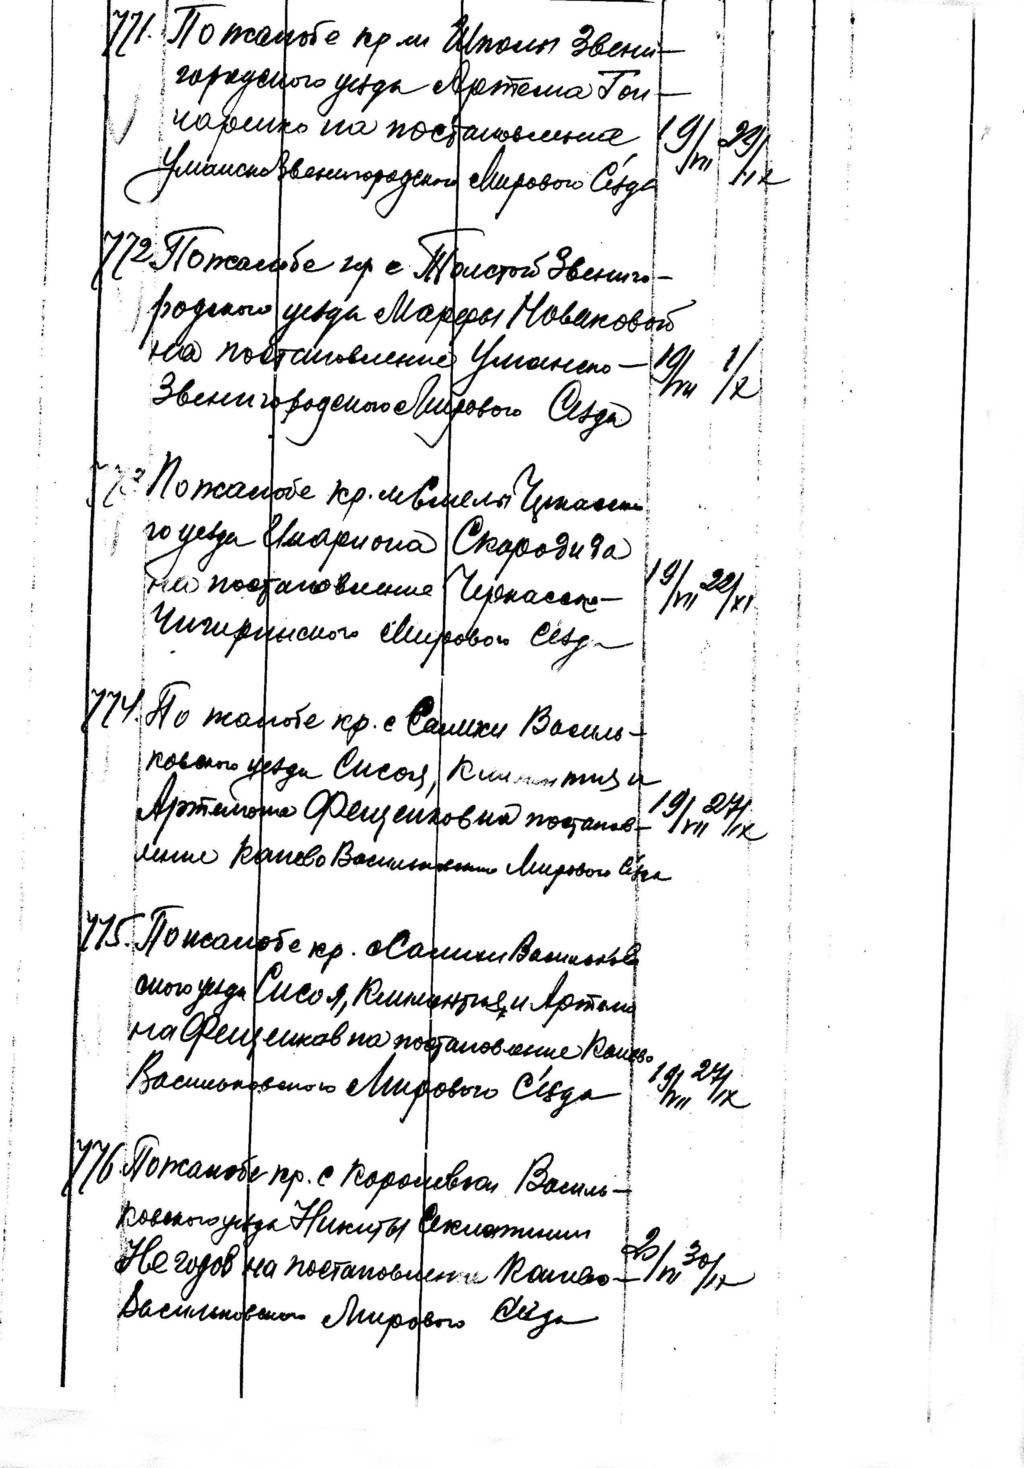 771. По жалобе кр. м Шполы Звени-
городского уезда Артема Гон-
чаренко на постановление 19/VII 29/IX
Уманско Звенигородского Мирового Сезда
772 По жалобе гр с Толстой Звениго-
родского уезда Марфы Новаковой
на постановление Уманско- 19/VII 1/X
Звенигородского Мирового Сезда
773 По жалобе кр. м Смелы Черкасско
го уезда Илариона Скародида
на постановление Черкасско- 19/VII 22/XI
Чигиринского Мирового Сезда
774. По жалобе кр. с Салихи Василь-
ковского уезда Сисоя, Климентия и
Артемона Фещенков на постанов- 19/VII 27/IX
ление Канево Васильковского Мирового Сезда
775. По жалобе кр. с Салихи Васильков
ского уезда Сисоя, Климентия, и Артемо
на Фещенков на постановление Канево
Васильковского Мирового Сезда 19/VII 27/IX
776 По жалобе кр. с Королевки Василь-
ковского уезда Никиты
Негодов на постановление Канево- 20/VII 30/IX
Васильковского Мирового Сезда